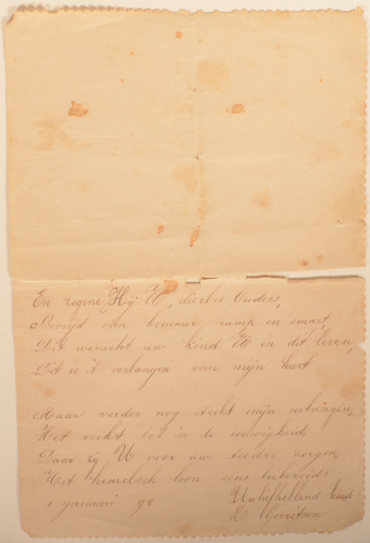 En zegene Hij U, dierbre Ouders,
Bevrijd van kommer, ramp en smart,
Dit wenscht uw kind U in dit leven,
Dit is 't verlangen van mijn hart.
Maar verder nog strekt mijn verlangen,
Het reikt tot in de eeuwigheid
Daar zij U voor uw teedre zorgen
Het hemelsch loon eens toebereid.
1 januari 90
Uw liefhebbend kind
Gerritsen